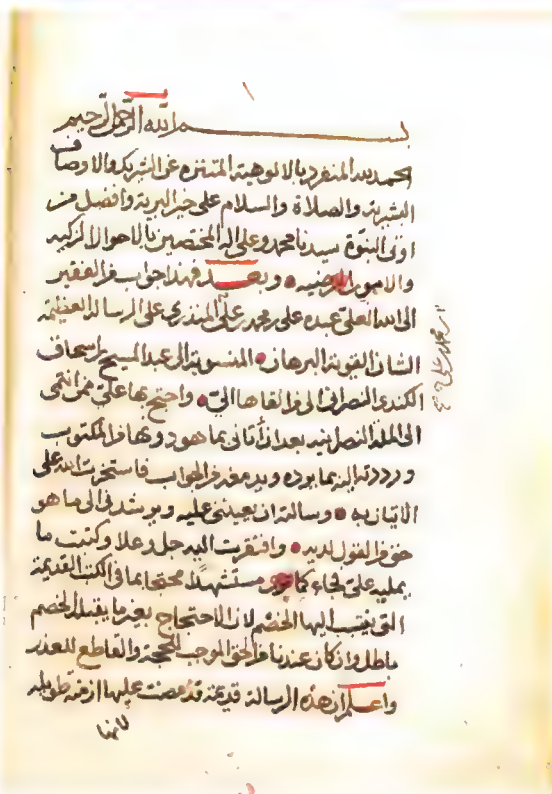 ١
بسم الله الرحمن الرحيم
الحمد لله المنفرد بالالوهية المتنزه عن الشريك والاوصاف
البشرية والصلاة والسلام على خير البرية وافضل من
اوتى النبوة سيدنا محمد وعلى اله المختصين بالاحوال الزكيه
والامور المرضيه وبعد فهذا جواب من الفقير
الى الله العلي عبده على بن محمد بن علي المنذري على الرسالة العظيمة
الشان القوية البرهان المنسوبة الى عبد المسيح بن اسحاق
الكندي النصراني الذي القاها الي واحتج بها علي ممن انتمى
الى الملة النصرانيه بعد ان أتانى بما هو دونها من المكتوب
ورددته اليه بما يرده ويدمغه من الجواب فاستخرت الله على
الاتيان به وسالته ان يعينني عليه ويرشدني الى ما هو
حق من القول لديه وافتقرت اليه جل وعلا وكتبت ما
يمليه علي فجاء كما مستشهدا محتجا بما في الكتب القديمة
التي ينتسب اليها الخصم لان الاحتجاج بغير ما يقبله الخصم
باطل وان كان عندنا هو الحق الموجب للحجة والقاطع للعذر
واعلم ان هذه الرسالة قديمة قد مضت عليها ازمنة طويله
لانها